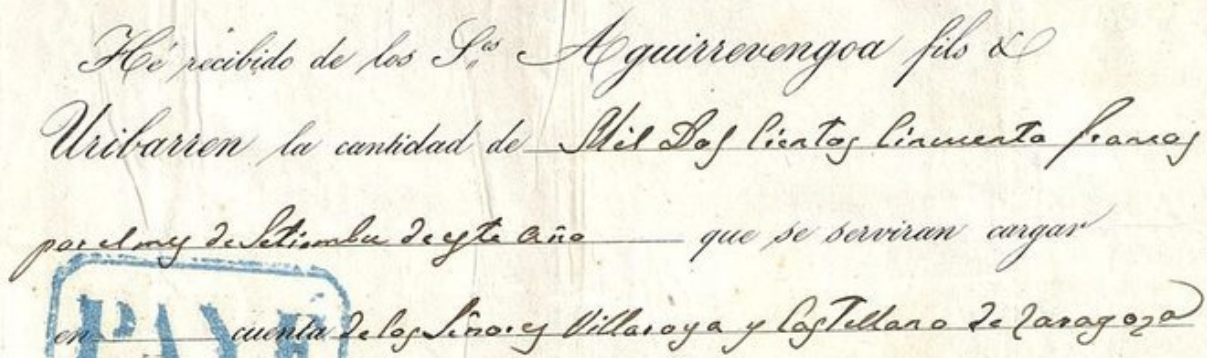 Hé recibido de los S.es Aguirrevengoa fils &
Uribarren la cantidad de Mil Dos Cientos Cincuenta francos
por el mes de Setiembre de este año que se serviran cargar
en cuenta de los Señores Villaroya y Castellano de Zaragoza
PAYÉ